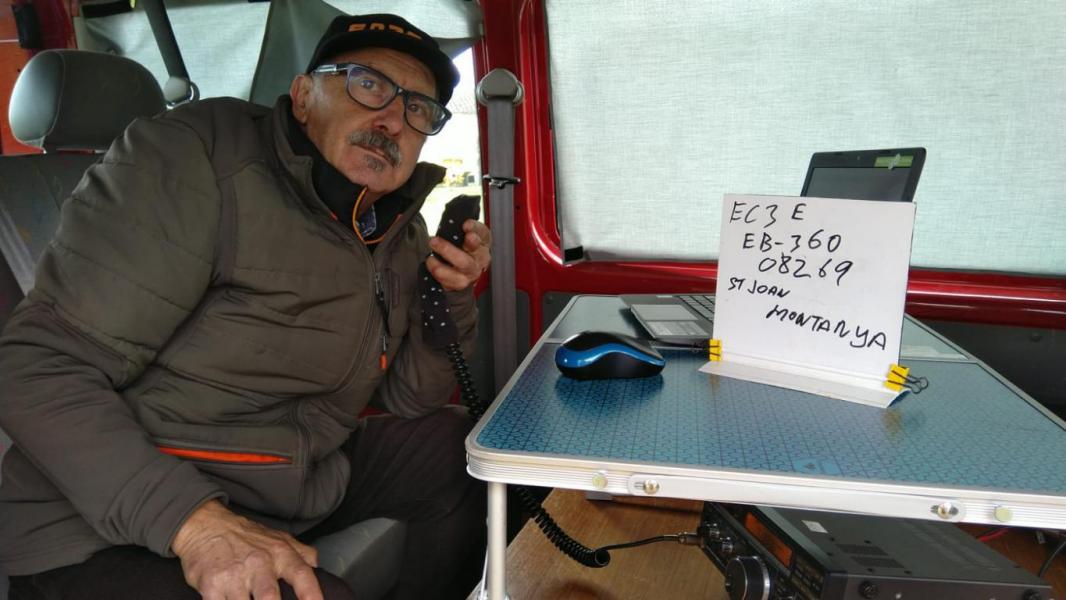 EC3 E
EB-360
08269
ST JOAN
MONTANYA